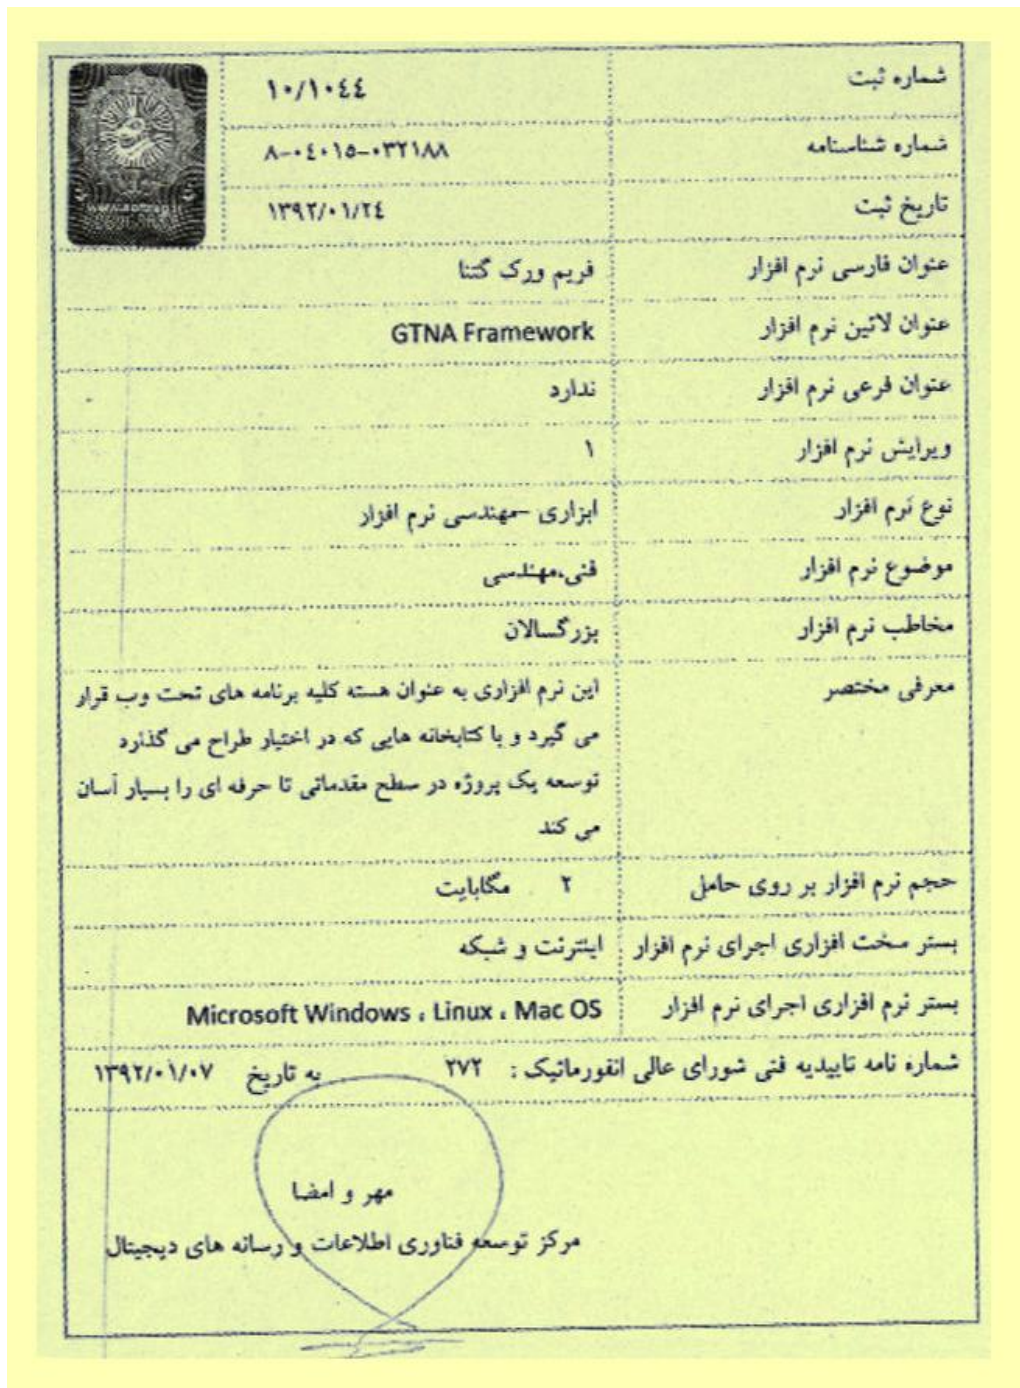 شماره ثبت ۱۰/۱۰٤٤
شماره شناسنامه ۸-۰٤۰۱۵-۰۳۲۱۸۸
تاریخ ثبت ۱۳۹۲/۰۱/۲٤
عنوان فارسی نرم افزار فریم ورک گتنا
عنوان لاتین نرم افزار GTNA Framework
عنوان فرعی نرم افزار ندارد
ویرایش نرم افزار ۱
نوع نرم افزار ابزاری -مهندسی نرم افزار
موضوع نرم افزار فنی،مهندسی
مخاطب نرم افزار بزرگسالان
معرفی مختصر این نرم افزاری به عنوان هسته کلیه برنامه های تحت وب قرار
می گیرد و با کتابخانه هایی که در اختیار طراح می گذارد
توسعه یک پروژه در سطح مقدماتی تا حرفه ای را بسیار آسان
می کند
حجم نرم افزار بر روی حامل ۲ مگابایت
بستر سخت افزاری اجرای نرم افزار اینترنت و شبکه
بستر نرم افزاری اجرای نرم افزار Microsoft Windows ، Linux ، Mac OS
شماره نامه تاییدیه فنی شورای عالی انفورماتیک : ۲۷۲ به تاریخ ۱۳۹۲/۰۱/۰۷
مهر و امضا
مرکز توسعه فناوری اطلاعات و رسانه های دیجیتال